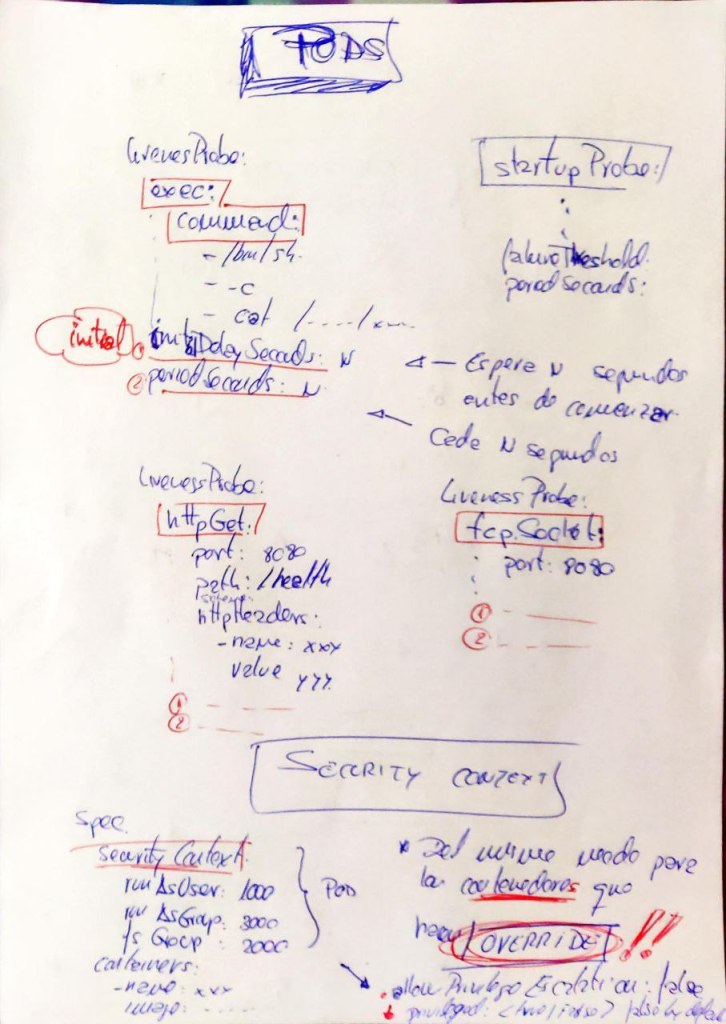 PODS
livenesProbe:
exec:
command:
- /bin/sh
- -c
- cat /..../xxx...
initial
① initialDelaySeconds: N
② periodSeconds: N
startupProbe:
failureThreshold.
periodSeconds:
Espere N segundos
antes de comenzar
Cede N segundos
LivenessProbe:
httpGet:
port: 8080
path: /health
scheme:
httpHeaders:
- name: xxx
value yyy.
①
②
Liveness Probe:
tcp.Socket:
port: 8080
①
②
SECURITY CONTEXT
Spec
securityContext:
runAsUser: 1000
runAsGroup: 3000
fsGroup: 2000
containers:
- name: xxx
POD
* Del mismo modo para
los contenedores que
hacen OVERRIDE !!
allowPrivilegeEscalation: false
privileged: <true|false> false by default